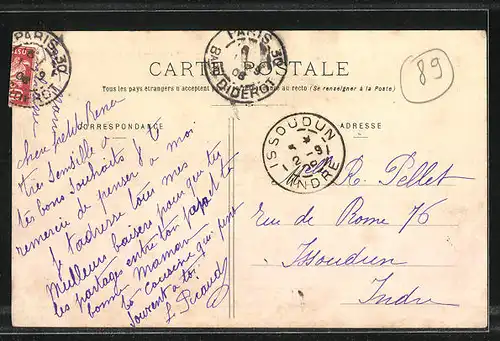 PARIS 30
DIDEROT
PARIS 30
BARD DIDEROT
CARTE POSTALE
Tous les pays étrangers n'acceptent au recto (Se renseigner à la Poste)
89
CORRESPONDANCE
ADRESSE
ISSOUDUN
2 - 9
INDRE
cher petit René
très sensible à
tes bons souhaits je te
remercie de penser à moi
Je t'adresse tous mes
Meilleurs baisers pour que tu
les partage entre ton papa et ta
bonne Maman
ta cousine qui pense
souvent à toi
L. Picaud
R. Pellet
rue de Rome 76
Issoudun
Indre